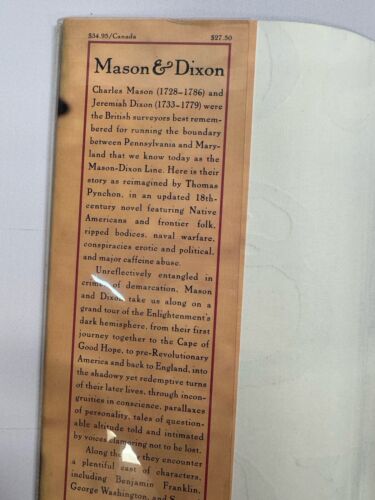 $34.95/Canada $27.50
Mason & Dixon
Charles Mason (1728–1786) and
Jeremiah Dixon (1733–1779) were
the British surveyors best remem-
bered for running the boundary
between Pennsylvania and Mary-
land that we know today as the
Mason-Dixon Line. Here is their
story as reimagined by Thomas
Pynchon, in an updated 18th-
century novel featuring Native
Americans and frontier folk,
ripped bodices, naval warfare,
conspiracies erotic and political,
and major caffeine abuse.
Unreflectively entangled in
crimes of demarcation, Mason
and Dixon take us along on a
grand tour of the Enlightenment's
dark hemisphere, from their first
journey together to the Cape of
Good Hope, to pre-Revolutionary
America and back to England, into
the shadowy yet redemptive turns
of their later lives, through incon-
gruities in conscience, parallaxes
of personality, tales of question-
able altitude told and intimated
by voices clamoring not to be lost.
Along the way they encounter
a plentiful cast of characters,
including Benjamin Franklin,
George Washington, and